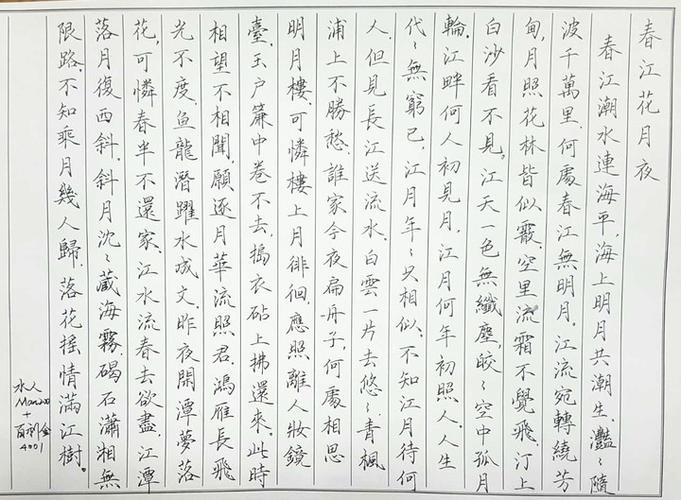 春江花月夜
春江潮水連海平，海上明月共潮生，灩〻隨
波千萬里，何處春江無明月，江流宛轉繞芳
甸，月照花林皆似霰，空里流霜不覺飛，汀上
白沙看不見，江天一色無纖塵，皎〻空中孤月
輪，江畔何人初見月，江月何年初照人，人生
代〻無窮已，江月年〻只相似，不知江月待何
人，但見長江送流水，白雲一片去悠〻，青楓
浦上不勝愁，誰家今夜扁舟子，何處相思
明月樓，可憐樓上月徘徊，應照離人妝鏡
臺，玉户簾中卷不去，搗衣砧上拂還來，此時
相望不相聞，願逐月華流照君，鴻雁長飛
光不度，魚龍潛躍水成文，昨夜閑潭夢落
花，可憐春半不還家，江水流春去欲盡，江潭
落月復西斜，斜月沈〻藏海霧，碣石瀟湘無
限路，不知乘月幾人歸，落花搖情滿江樹。
水人
+
百利金
4001